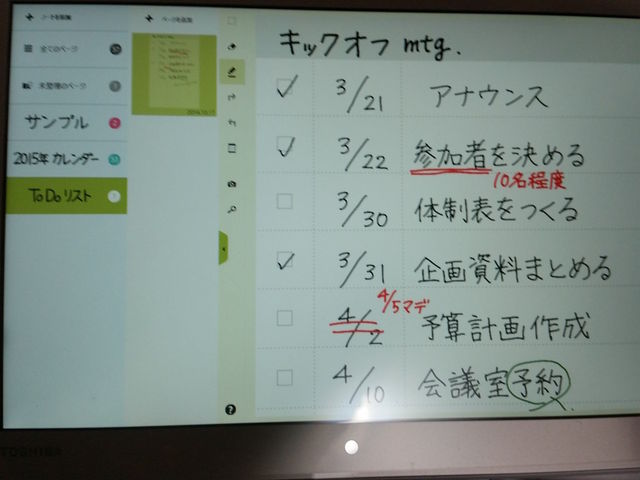 ノートを追加
ページを追加
全てのページ
未整理のページ
サンプル
2
2015年 カレンダー
ToDo リスト
1
キックオフ mtg.
3/21 アナウンス
3/22 参加者を決める
10名程度
3/30 体制表をつくる
3/31 企画資料まとめる
4/5マデ
4/2 予算計画作成
4/10 会議室予約
?
TOSHIBA